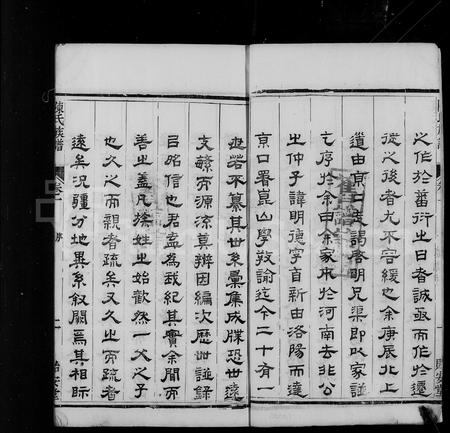 之作於蕃衍之日者誠亟而作於遷
徙之後者尤不容緩之余庚辰北上
道由京口
啓明兄渠即以家譜
乞序於余申余家本於河南去非公
之仲子諱明德字首新由洛陽而達
京口署崑山學教諭迄今二十有一
世若不纂其世系彙集成牒恐世遠
支繁而源流莫辨因編次歷世譜錄
以昭信也君盍為我紀其實余聞而
善之蓋凡族姓之始歡然一父之子
也久之而親者疏矣又久之而疏者
遠矣況疆分地異系敘闕焉其相昧
陳氏族譜
卷一